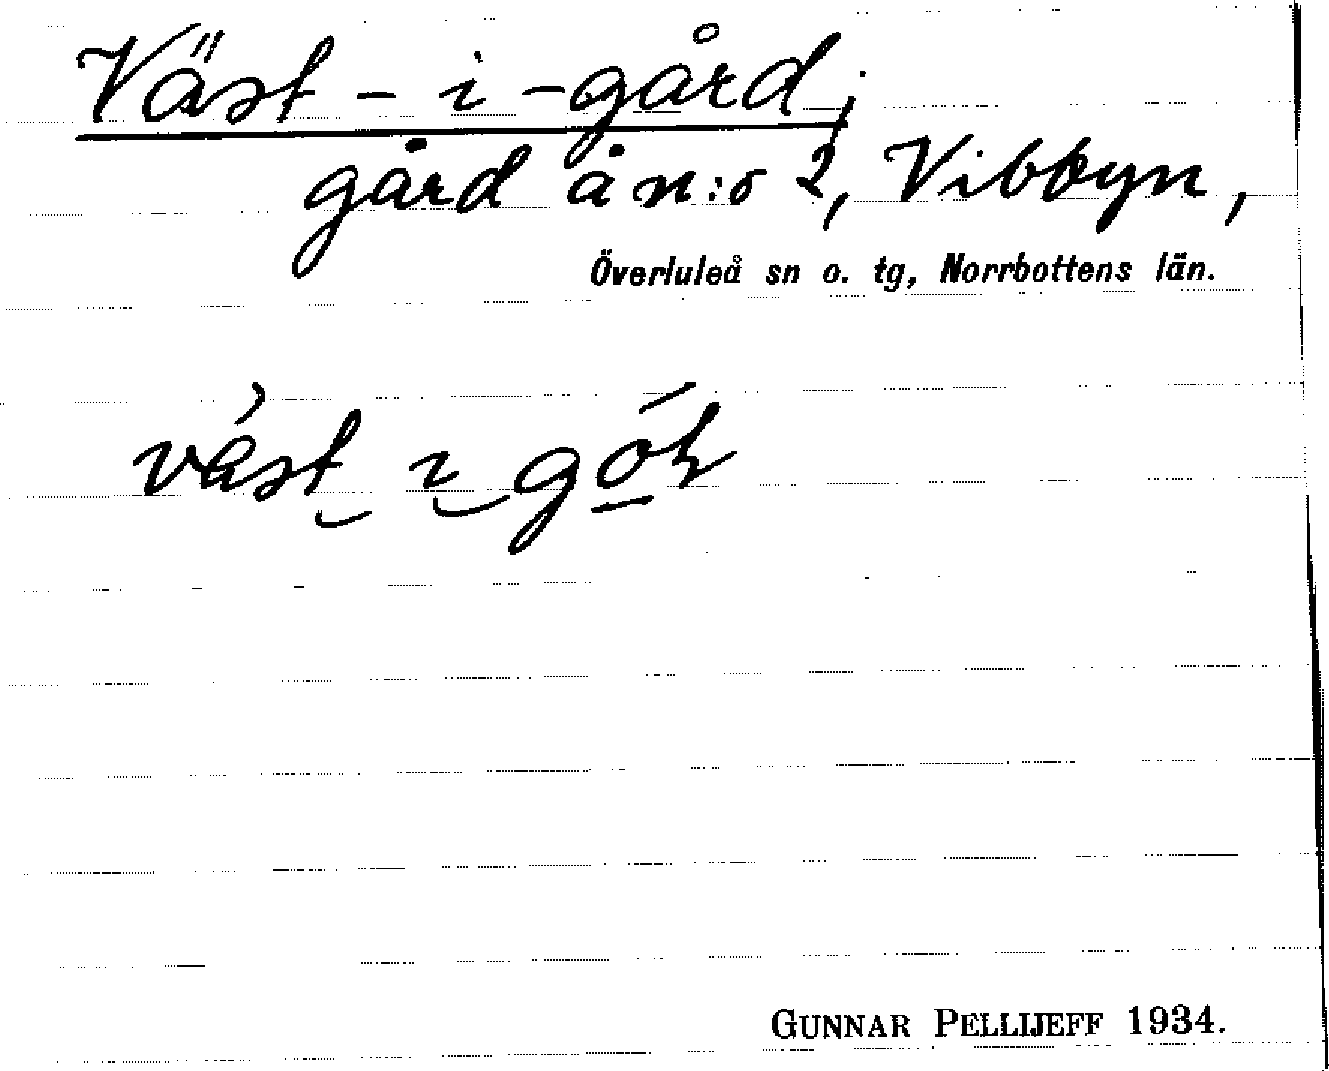 Väst-i-gård;
gård å n:o 2, Vibbyn,
Överluleå sn o. tg, Norrbottens län.
GUNNAR PELLIJEFF 1934.